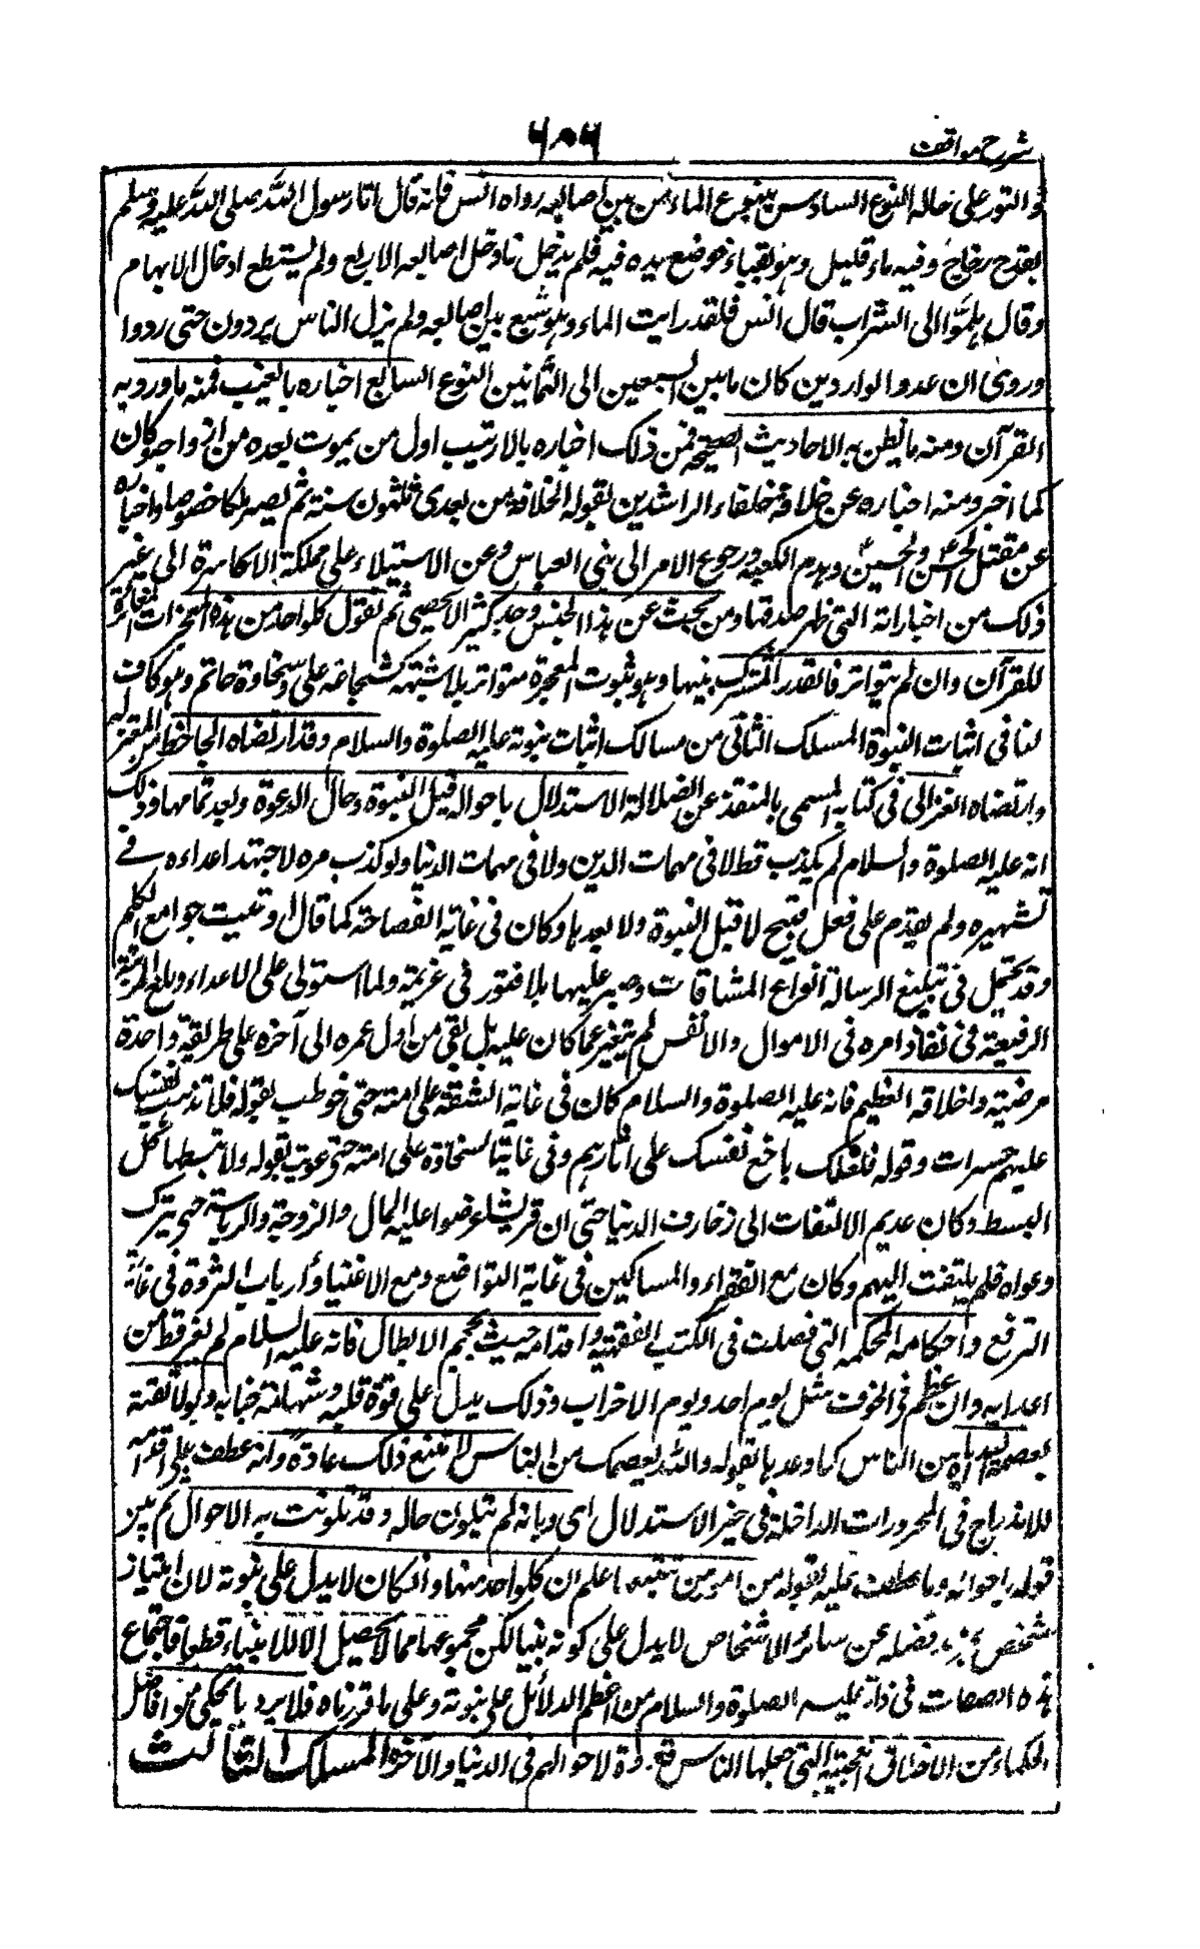 شرح مواقف
٦٠٦
والتور على حاله النوع السادس ينبوع الماء من بين اصابعه رواه انس فانه قال اتا رسول الله صلى الله عليه وسلم
بقدح زجاج وفيه ماء قليل وهو بقباء فوضع يده فيه فلم يدخل فادخل اصابعه الاربع ولم يستطع ادخال الابهام
وقال هلموا الى الشراب قال انس فلقد رايت الماء وهو ينبع بين اصابعه ولم يزل الناس يردون حتى رووا
وروى ان عدد الواردين كان ما بين السبعين الى الثمانين النوع السابع اخباره بالغيب فمنه ما ورد به
القرآن ومنه ما نطق به الاحاديث الصحيحة فمن ذلك اخباره بالترتيب اول من يموت بعده من ازواجه وكان
كما اخبر ومنه اخباره عن خلافة خلفاء الراشدين لقوله الخلافة من بعدى ثلثون سنة ثم يصير ملكا عضوضا واخباره
عن مقتل الحسن والحسين وهدم الكعبة ورجوع الامر الى بنى العباس وعن الاستيلاء على مملكة الاكاسرة الى غير
ذلك من اخباراته التى ظهر صدقها ومن بحث عن هذا الجنس وجد كثيرا لا يحصى ثم نقول كل واحد من هذه المعجزات المغايرة
للقرآن وان لم يتواتر فالقدر المشترك بينها وهو ثبوت المعجزة متواتر بلا شبهة كشجاعة على وسخاوة حاتم وهو كاف
لنا فى اثبات النبوة المسلك الثانى من مسالك اثبات نبوته عليه الصلوة والسلام وقد ارتضاه الجاحظ من المعتزلة
وارتضاه الغزالى فى كتابه المسمى بالمنقذ عن الضلالة الاستدلال باحواله قبل النبوة وحال الدعوة وبعد تمامها وذلك
انه عليه الصلوة والسلام لم يكذب قط لا فى مهمات الدين ولا فى مهمات الدنيا ولو كذب مره لاجتهد اعداءه فے
تشهيره ولم يقدم على فعل قبيح لا قبل النبوة ولا بعدها وكان فى غاية الفصاحة كما قال اوتيت جوامع الكلم
وقد تحمل فى تبليغ الرسالة انواع المشاقات وصبر عليها بلا فتور فى عزيمة ولما استولى على الاعداء وبلغ المرتبة
الرفيعة فى نفاذ امره فى الاموال والانفس لم يتغير عما كان عليه بل بقى من اول عمره الى آخره على طريقة واحدة
مرضية واخلاقه العظيم فانه عليه الصلوة والسلام كان فى غاية الشفقة على امته حتى خوطب بقوله فلا تذهب نفسك
عليهم حسرات وقوله فلعلك باخع نفسك على اثارهم وفى غاية السخاوة على امته حتى عوتب بقوله ولا تبسطها كل
البسط وكان عديم الالتفات الى زخارف الدنيا حتى ان قريشا عرضوا عليه المال والزوجة والرياسة حتى يترك
دعواه فلم يلتفت اليهم وكان مع الفقراء والمساكين فى غاية التواضع ومع الاغنياء وارباب الثروة فى غاية
الترفع واحكامه المحكمه التى فصلت فى الكتب الفقهية واقدامه حيث يحجم الابطال فانه عليه السلام لم يفر قط من
اعدايه وان عظم فى الخوف مثل يوم احد ويوم الاحزاب وذلك يدل على قوة قلبه وشهامة جنانه ولولا ثقته
بعصمة الله اياه من الناس كما وعدها بقوله والله يعصمك من الناس لامتنع ذلك عادة وانه عطف على اقدامه
للاندراج فى المجرورات الداخلة فى حيز الاستدلال اى وبانه لم يتلون حاله وقد تلونت به الاحوال ثم بين
قوله باحواله وما عطف عليه بقوله من امور من تتبعها علم ان كل واحد منها وان كان لا يدل على نبوته لان امتياز
شخص بمزيد فضله عن سائر الاشخاص لا يدل على كونه نبيا لكن مجموعها مما لا يحصل الا للانبياء قطعا فاجتماع
هذه الصفات فى ذاته عليه الصلوة والسلام من اعظم الدلائل على نبوته وعلى ما قررناه فلا يرد ما يحكى من افاضل
الحكماء من الاخلاق العجيبة التى جعلها الناس قدوة لاحوالهم فى الدنيا والآخرة المسلك الثالث